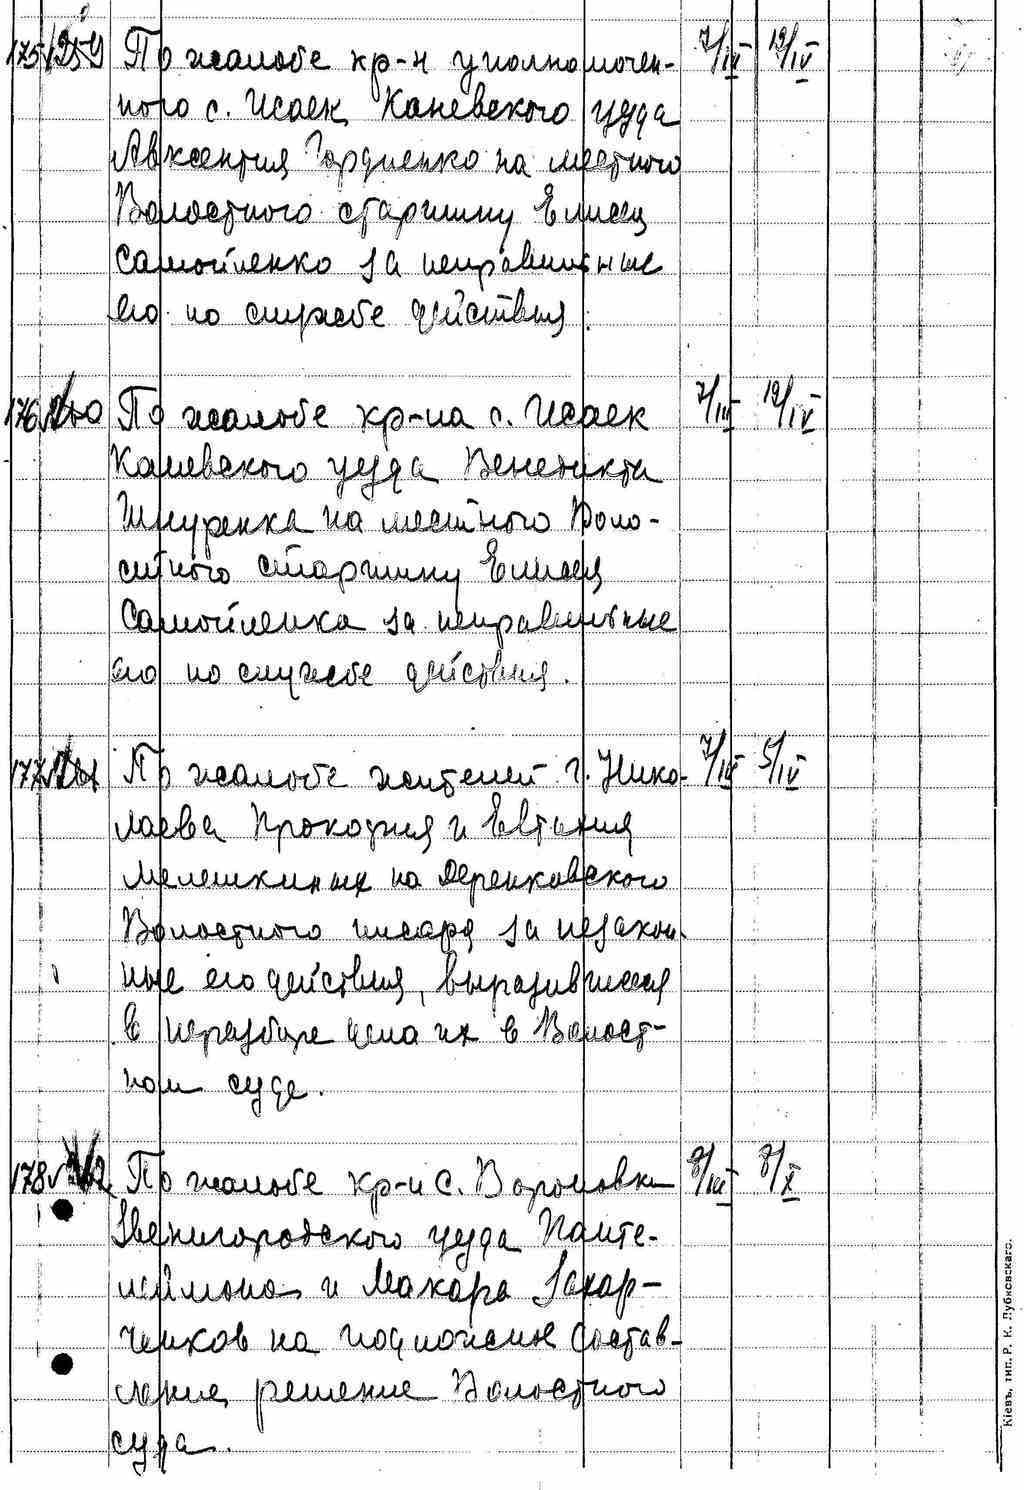 175 259 По жалобе кр-н уполномочен- 7/III 12/IV
ного с. Исаек Каневского уезда
Авксентия Гордиенко на местного
Волостного старшину Елисея
Самойленко за неправильные
его по службе действия.
176 По жалобе кр-на с. Исаек 7/III 12/IV
Каневского уезда Венедикта
Шнуренка на местного Воло-
стного старшину Елисея
Самойленка за неправильные
его по службе действия.
177 По жалобе жителей г. Нико- 7/III 5/IV
лаева Прокофия и Евгения
Мелешкиных на Деренковского
Волостного писаря за незакон-
ные его действия, выразившиеся
в неразборе дела их в Волост-
ном суде.
178 По жалобе кр-н с. Вороновки 8/III 8/X
Звенигородского уезда Панте-
леймона и Макара Захар-
ченков на подложное состав-
ление решение Волостного
суда.
Кіевъ, тип. Р. К. Лубковскаго.